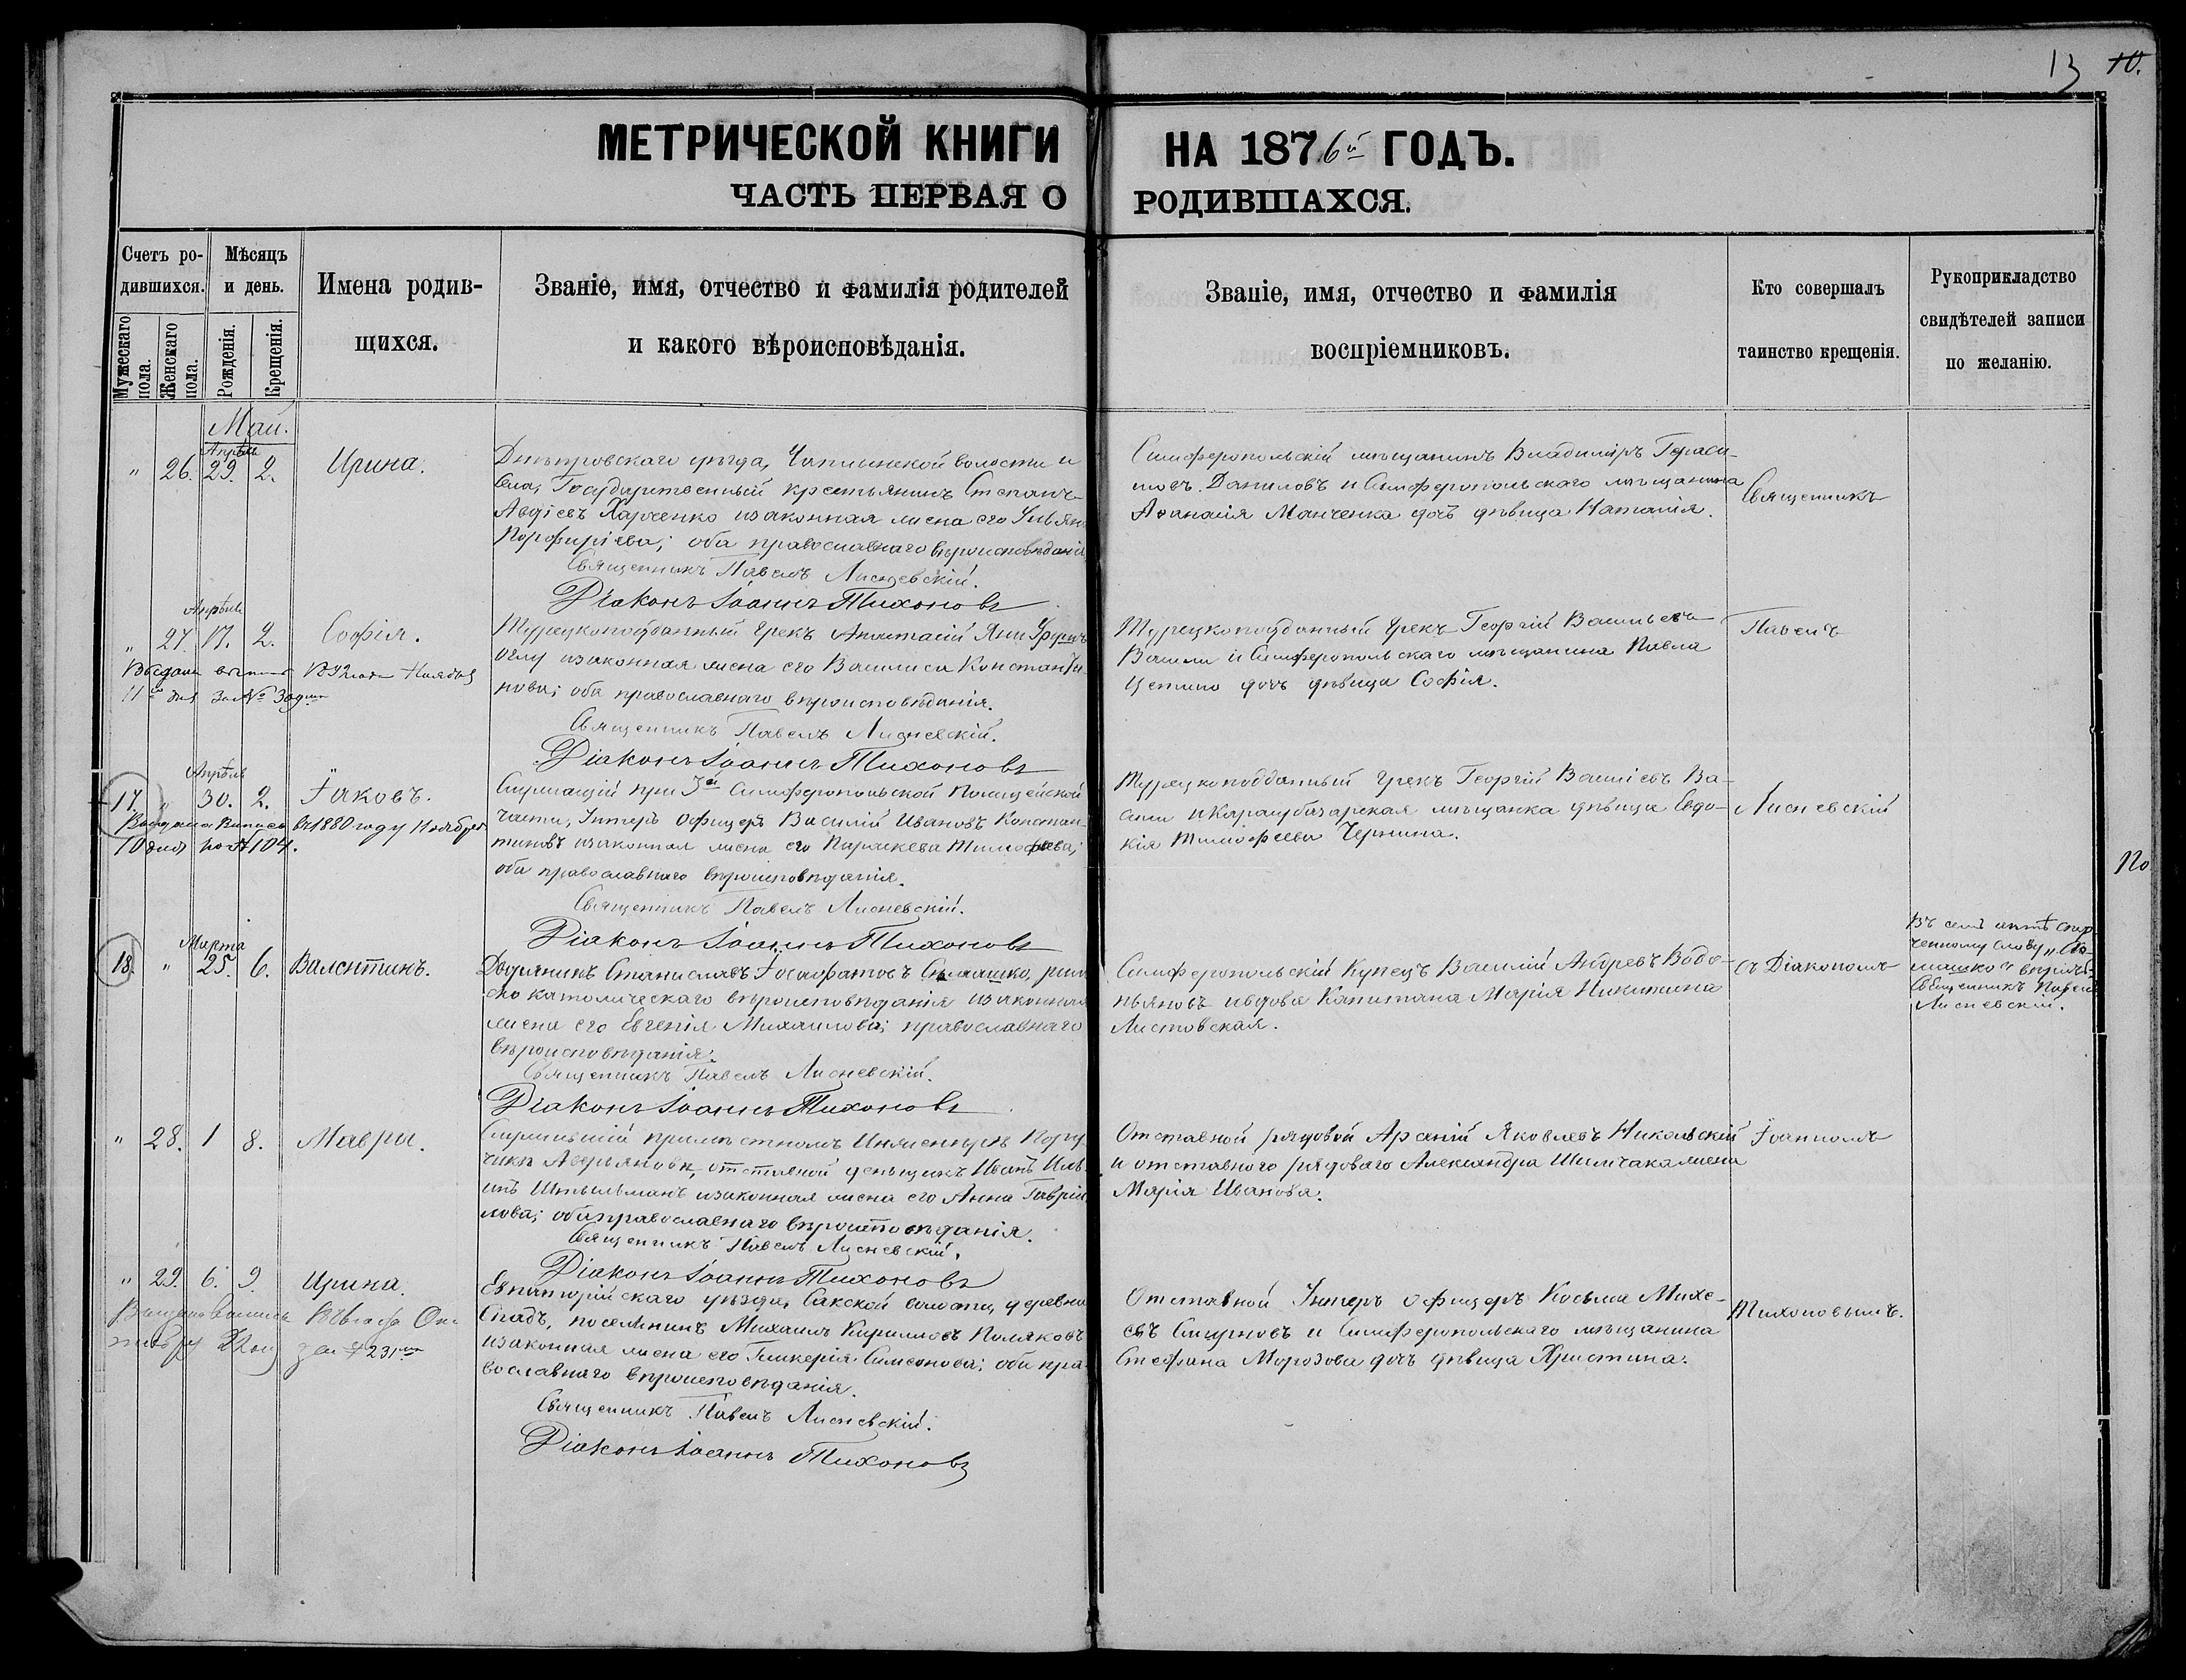 13 10.
МЕТРИЧЕСКОЙ КНИГИ НА 1876й ГОДЪ.
ЧАСТЬ ПЕРВАЯ О РОДИВШАХСЯ.
Счетъ ро-
дившихся.
Мужескаго пола.
Женскаго пола.
Мѣсяцъ
и день.
Рожденія.
Крещенія.
Имена родив-
щихся.
Званіе, имя, отчество и фамилія родителей
и какого вѣроисповѣданія.
Званіе, имя, отчество и фамилія
воспріемниковъ.
Кто совершалъ
таинство крещенія.
Рукоприкладство
свидѣтелей записи
по желанію.
Май.
Апрѣль
" 26. 29. 2. Ирина.
Днѣпровскаго уѣзда, Чаплынской волости и
села, Государственный крестьянинъ Степанъ
Авдіевъ Харченко и законная жена его
Порфиріева; оба православнаго вѣроисповѣданія
Священникъ Павелъ Лисневскій.
Діаконъ Іоаннъ Тихоновъ
Симферопольскій мѣщанинъ Владиміръ Гераси-
мовъ Даниловъ и Симферопольскаго мѣщанина
Афанасія Манченка дочь дѣвица Наталія.
Священникъ
Апрѣль
" 27. 17. 2. Софія.
Турецкоподданный Грекъ Анастасій Яни
Оглу и законная жена его Василиса Константи-
нова; оба православнаго вѣроисповѣданія.
Священникъ Павелъ Лисневскій.
Діаконъ Іоаннъ Тихоновъ
11го дня за №
Турецкоподданный Грекъ Георгій Васильевъ
Васили и Симферопольскаго мѣщанина Павла
дочь дѣвица Софія.
Павелъ
Апрѣль
17. " 30. 2. Іаковъ.
Выдана Выпись въ 1880 году Ноября
10 дня по № 104.
Служащій при 3й Симферопольской Полицейской
части, Унтеръ Офицеръ Василій Ивановъ Констан-
тиновъ и законная жена его Параскева Тимофеева;
оба православнаго вѣроисповѣданія.
Священникъ Павелъ Лисневскій.
Діаконъ Іоаннъ Тихоновъ
Турецкоподданный Грекъ Георгій Василіевъ Ва-
сили и Карасубазарская мѣщанка дѣвица Евдо-
кія Тимофеева Чернина.
Лисневскій
По
Марта
18. " 25. 6. Валентинъ.
Дворянинъ Станиславъ Іосафатовъ Сѣмашко, рим-
ско католическаго вѣроисповѣданія и законная
жена его Евгенія Михаилова; православнаго
вѣроисповѣданія.
Священникъ Павелъ Лисневскій.
Діаконъ Іоаннъ Тихоновъ
Симферопольскій Купецъ Василій Андреевъ Водо-
пьяновъ и вдова Капитана Марія Никитина
Листовская.
съ Діакономъ
Въ семъ актѣ
ченному слову
машко" вѣрить
Священникъ Павелъ
Лисневскій.
" 28. 1 8. Мавра.
Служившій при мѣстномъ Инженеръ Пору-
чикѣ Аверьяновѣ, отставной деньщикъ Иванъ Иль-
инъ Штыльманъ и законная жена его Анна Гаврии-
лова; оба православнаго вѣроисповѣданія.
Священникъ Павелъ Лисневскій.
Діаконъ Іоаннъ Тихоновъ
Отставной рядовой Арсеній Яковлевъ Никольскій
и отставного рядоваго Александра Шимчака жена
Марія Иванова.
Іоанномъ
" 29. 6. 9. Ирина.
Евпаторійскаго уѣзда, Сакской волости, деревни
поселянинъ Михаилъ Кирилловъ Поляковъ
и законная жена его Гликерія Симеонова; оба пра-
вославнаго вѣроисповѣданія.
Священникъ Павелъ Лисневскій.
Діаконъ Іоаннъ Тихоновъ
Отставной Унтеръ Офицеръ Косьма Михе-
евъ Смирновъ и Симферопольскаго мѣщанина
Стефана Морозова дочь дѣвица Христина.
Тихоновымъ.